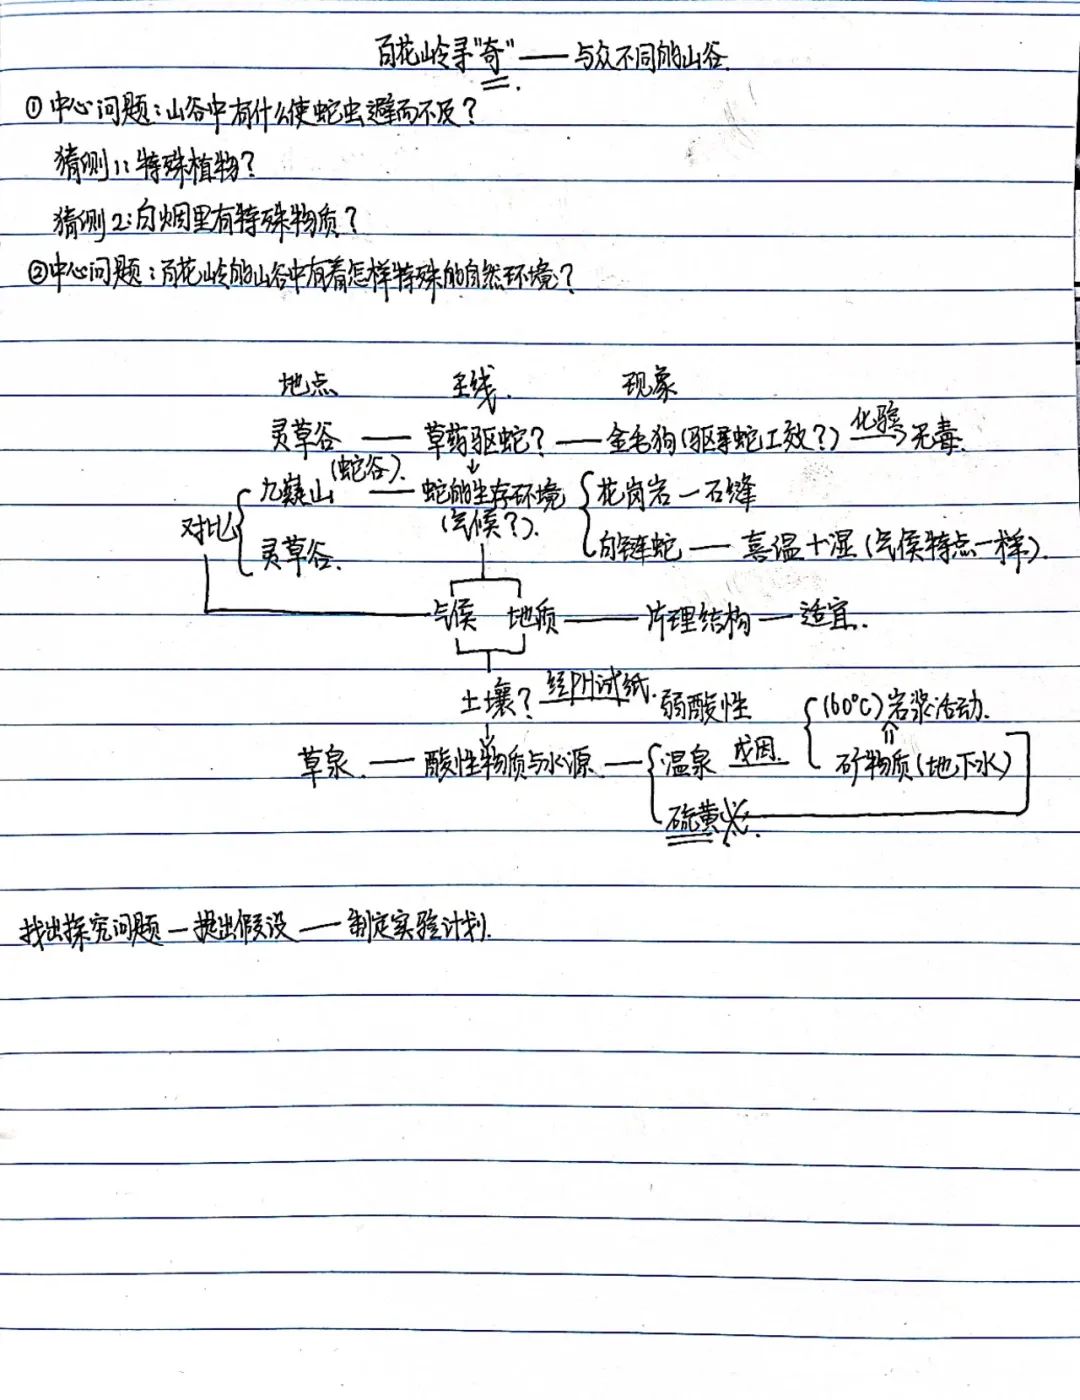 百花岭寻"奇"——与众不同的山谷.
①中心问题:山谷中有什么使蛇虫避而不及?
猜测1:特殊植物?
猜测2:白烟里有特殊物质?
②中心问题:百花岭的山谷中有着怎样特殊的自然环境?
地点 主线. 现象
灵草谷 — 草药驱蛇? — 金毛狗(驱寻蛇工效?) 化验→ 无毒.
九嶷山(蛇谷). — 蛇的生存环境 花岗岩—石缝
对比 (气候?).
灵草谷. 白链蛇 — 喜温+湿(气候特点一样).
气候 地质 — 片理结构 — 适宜.
土壤? 经PH试纸. 弱酸性 (60℃)岩浆活动.
草泉. — 酸性物质与水源. — 温泉 成因. 矿物质(地下水)
硫黄
找出探究问题—提出假设——制定实验计划.